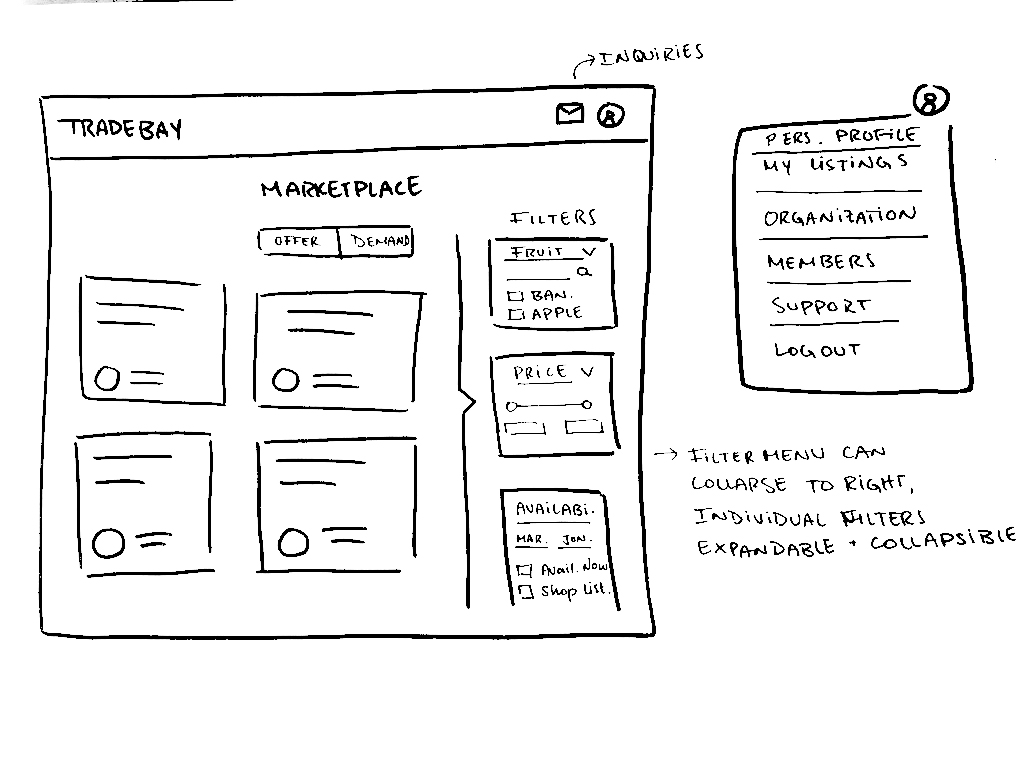 INQUIRIES
TRADEBAY
MARKETPLACE
OFFER DEMAND
FILTERS
FRUIT
BAN.
APPLE
PRICE
AVAILABI.
MAR. JUN.
Avail. Now
Shop List.
PERS. PROFILE
MY LISTINGS
ORGANIZATION
MEMBERS
SUPPORT
LOGOUT
→ FILTER MENU CAN
COLLAPSE TO RIGHT,
INDIVIDUAL FILTERS
EXPANDABLE + COLLAPSIBLE